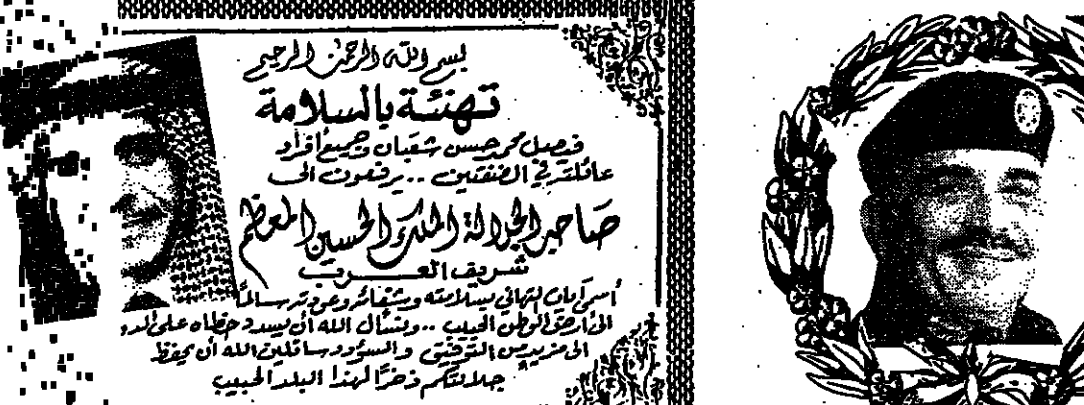 بسم الله الرحمن الرحيم
تهنئة بالسلامة
فيصل محمد حسن شعبان وجميع أفراد
عائلته في الضفتين .. يرفعون الى
صاحب الجلالة الملك الحسين المعظم
شريف العرب
أسمى آيات التهاني بسلامته وبشفائه وعودته سالماً
الى أرض الوطن الحبيب .. ونسأل الله أن يسدد خطاه على
الى مزيد من التوفيق والسؤدد سائلين الله أن يحفظ
جلالتكم ذخراً لهذا البلد الحبيب